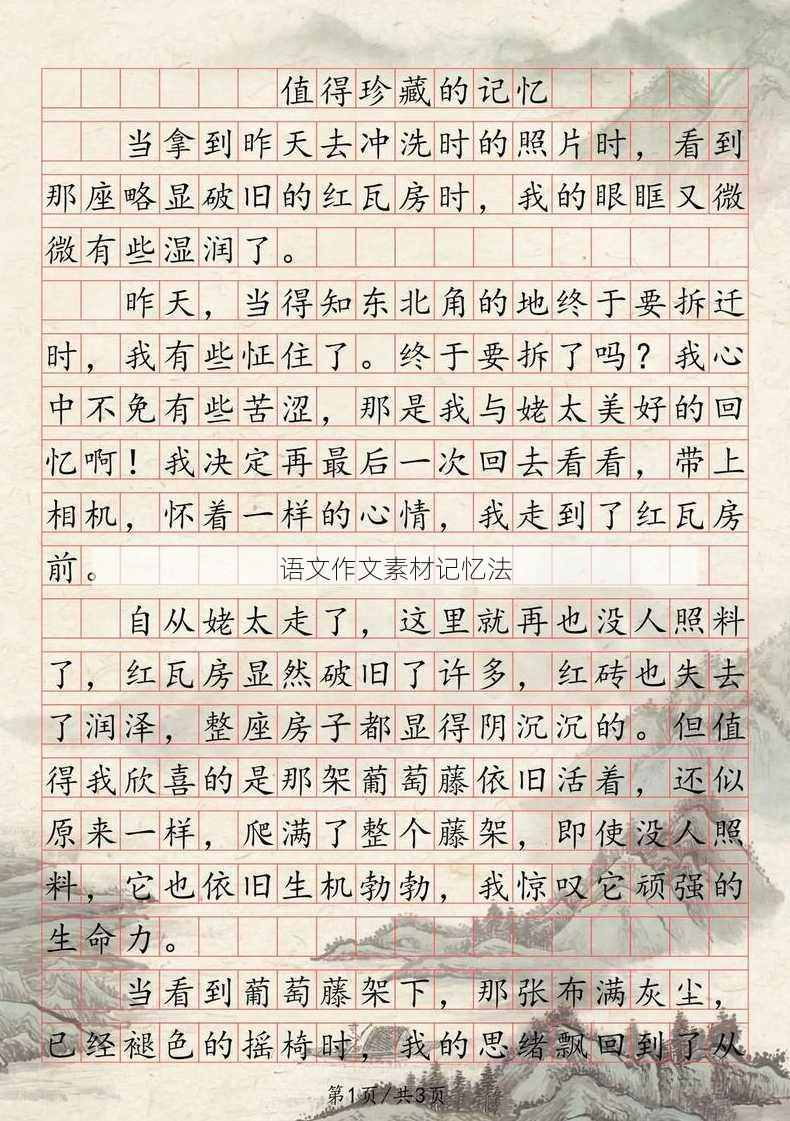 值得珍藏的记忆
当拿到昨天去冲洗时的照片时，看到
那座略显破旧的红瓦房时，我的眼眶又微
微有些湿润了。
昨天，当得知东北角的地终于要拆迁
时，我有些怔住了。终于要拆了吗？我心
中不免有些苦涩，那是我与姥太美好的回
忆啊！我决定再最后一次回去看看，带上
相机，怀着一样的心情，我走到了红瓦房
前。
语文作文素材记忆法
自从姥太走了，这里就再也没人照料
了，红瓦房显然破旧了许多，红砖也失去
了润泽，整座房子都显得阴沉沉的。但值
得我欣喜的是那架葡萄藤依旧活着，还似
原来一样，爬满了整个藤架，即使没人照
料，它也依旧生机勃勃，我惊叹它顽强的
生命力。
当看到葡萄藤架下，那张布满灰尘，
已经褪色的摇椅时，我的思绪飘回到了从
第1页/共3页